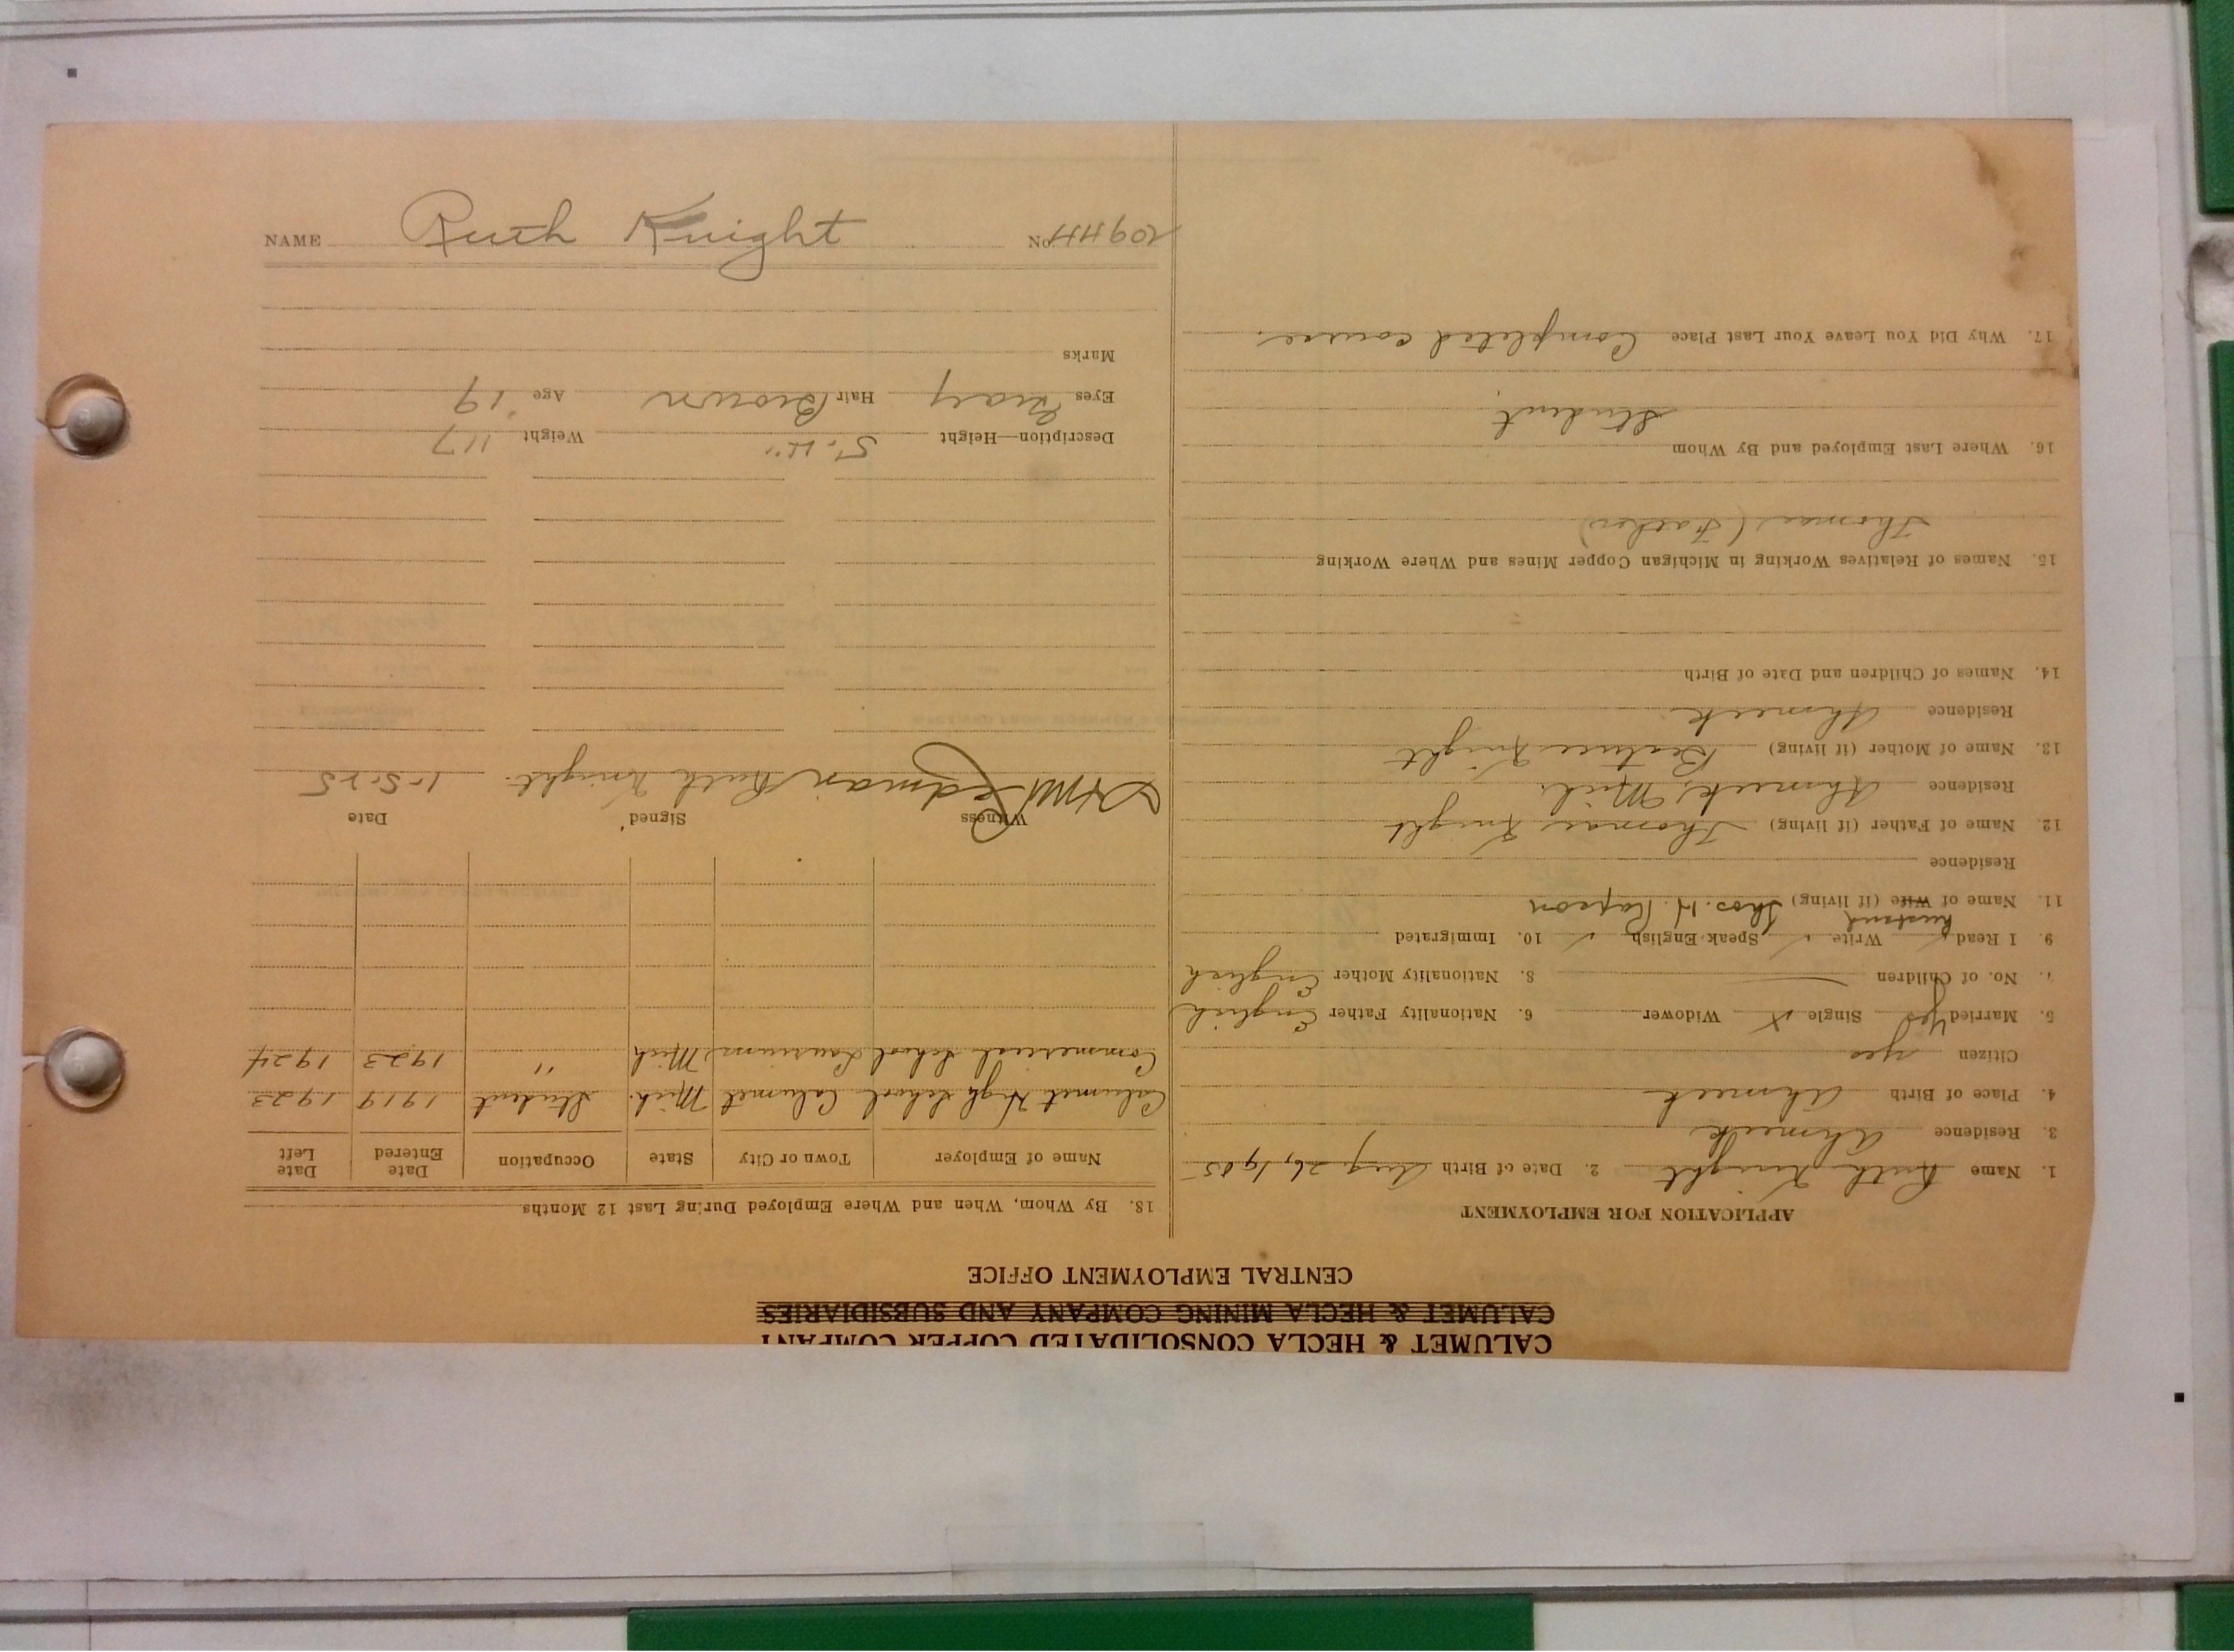 CALUMET & HECLA CONSOLIDATED COPPER COMPANY
CALUMET & HECLA MINING COMPANY AND SUBSIDIARIES
CENTRAL EMPLOYMENT OFFICE
APPLICATION FOR EMPLOYMENT
1. Name Ruth Knight 2. Date of Birth Aug 26, 1905
3. Residence Ahmeek
4. Place of Birth Ahmeek
Citizen yes
5. Married Yes Single X Widower 6. Nationality Father English
7. No. of Children 8. Nationality Mother English
9. I Read ✓ Write ✓ Speak English ✓ 10. Immigrated
husband
11. Name of Wife (if living) Thos. H. Rapson
Residence
12. Name of Father (if living) Thomas Knight
Residence Ahmeek, Mich.
13. Name of Mother (if living) Beatrice Knight
Residence Ahmeek
14. Names of Children and Date of Birth
15. Names of Relatives Working in Michigan Copper Mines and Where Working
Thomas (Father)
16. Where Last Employed and By Whom
Student.
17. Why Did You Leave Your Last Place Completed course.
18. By Whom, When and Where Employed During Last 12 Months
Name of Employer Town or City State Occupation Date Entered Date Left
Calumet High School Calumet Mich. Student 1919 1923
Commercial School Laurium Mich " 1923 1924
Witness Signed Date
Redman Ruth Knight. 1-5-25
Description—Height 5'.4" Weight 117
Eyes Gray Hair Brown Age 19
Marks
NAME Ruth Knight No.